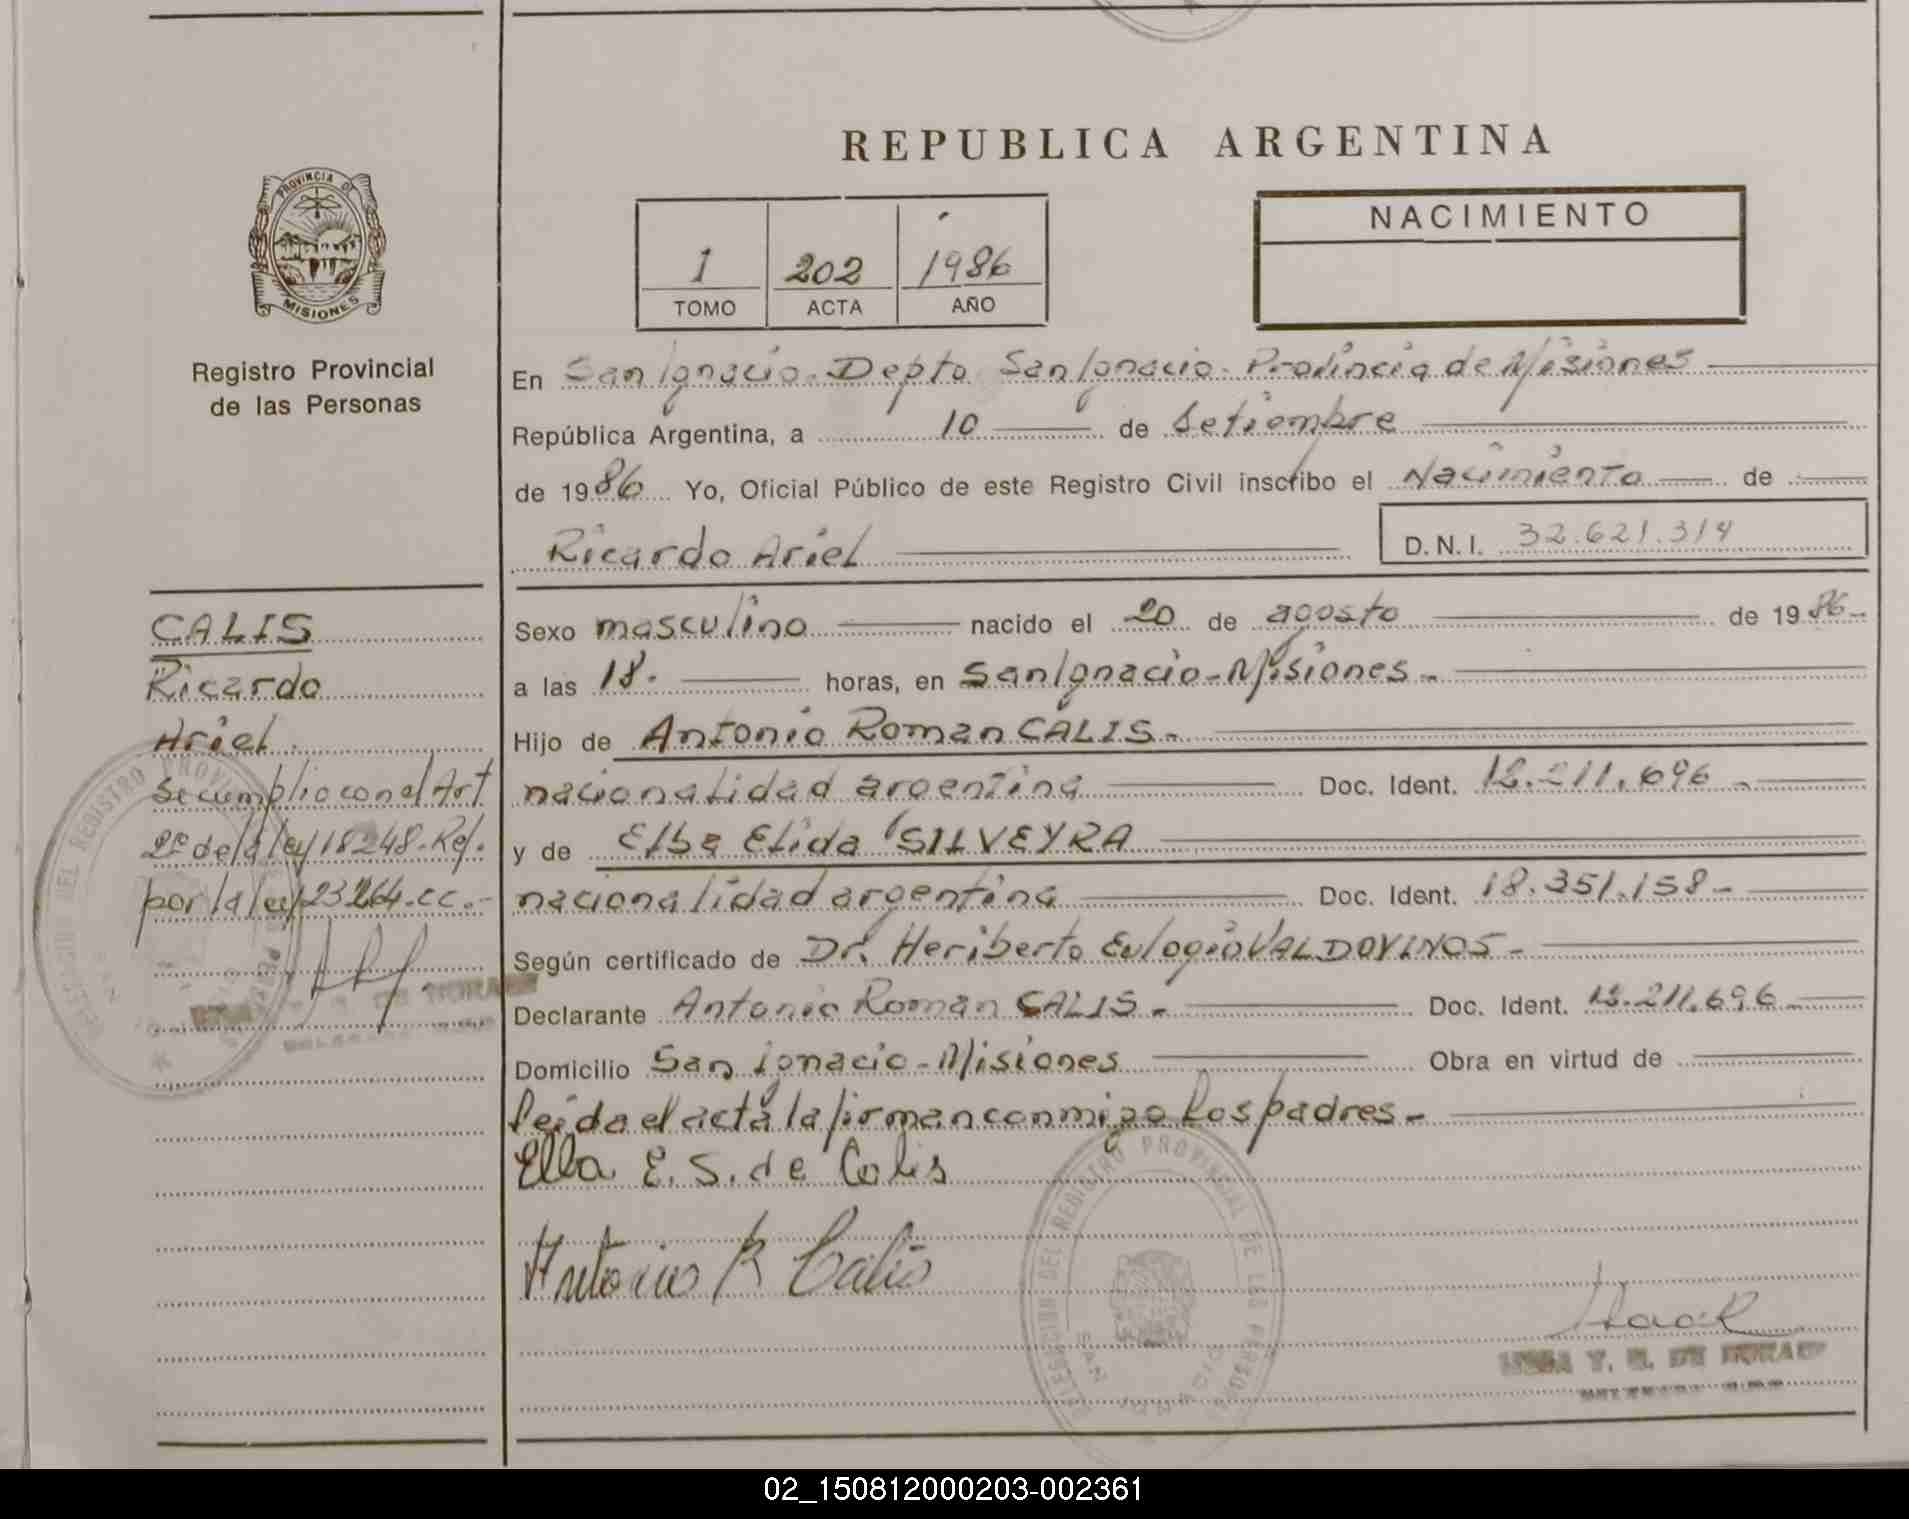 REPUBLICA ARGENTINA
PROVINCIA DE
MISIONES
Registro Provincial
de las Personas
1 202 1986
TOMO ACTA AÑO
NACIMIENTO
En San Ignacio. Depto San Ignacio. Provincia de Misiones
República Argentina, a 10 de Setiembre
de 1986 Yo, Oficial Público de este Registro Civil inscribo el Nacimiento de
Ricardo Ariel D.N.I. 32.621.314
CALIS
Ricardo
Ariel.
Se cumplio con el Art
2º de la ley 18248. Ref.
por la ley 23264.cc.-
Sexo masculino nacido el 20 de agosto de 1986-
a las 18. horas, en San Ignacio-Misiones-
Hijo de Antonio Roman CALIS-
nacionalidad argentina Doc. Ident. 12.211.696-
y de Elba Elida SILVEYRA
nacionalidad argentina Doc. Ident. 18.351.158-
Según certificado de Dr. Heriberto Eulogio VALDOVINOS-
Declarante Antonio Roman CALIS- Doc. Ident. 12.211.696-
Domicilio San Ignacio-Misiones Obra en virtud de
leida el acta la firman conmigo los padres-
Elba E. S. de Calis
Antonio R Calis
DELEGACION DEL REGISTRO PROVINCIAL DE LAS PERSONAS
SAN IGNACIO
02_150812000203-002361